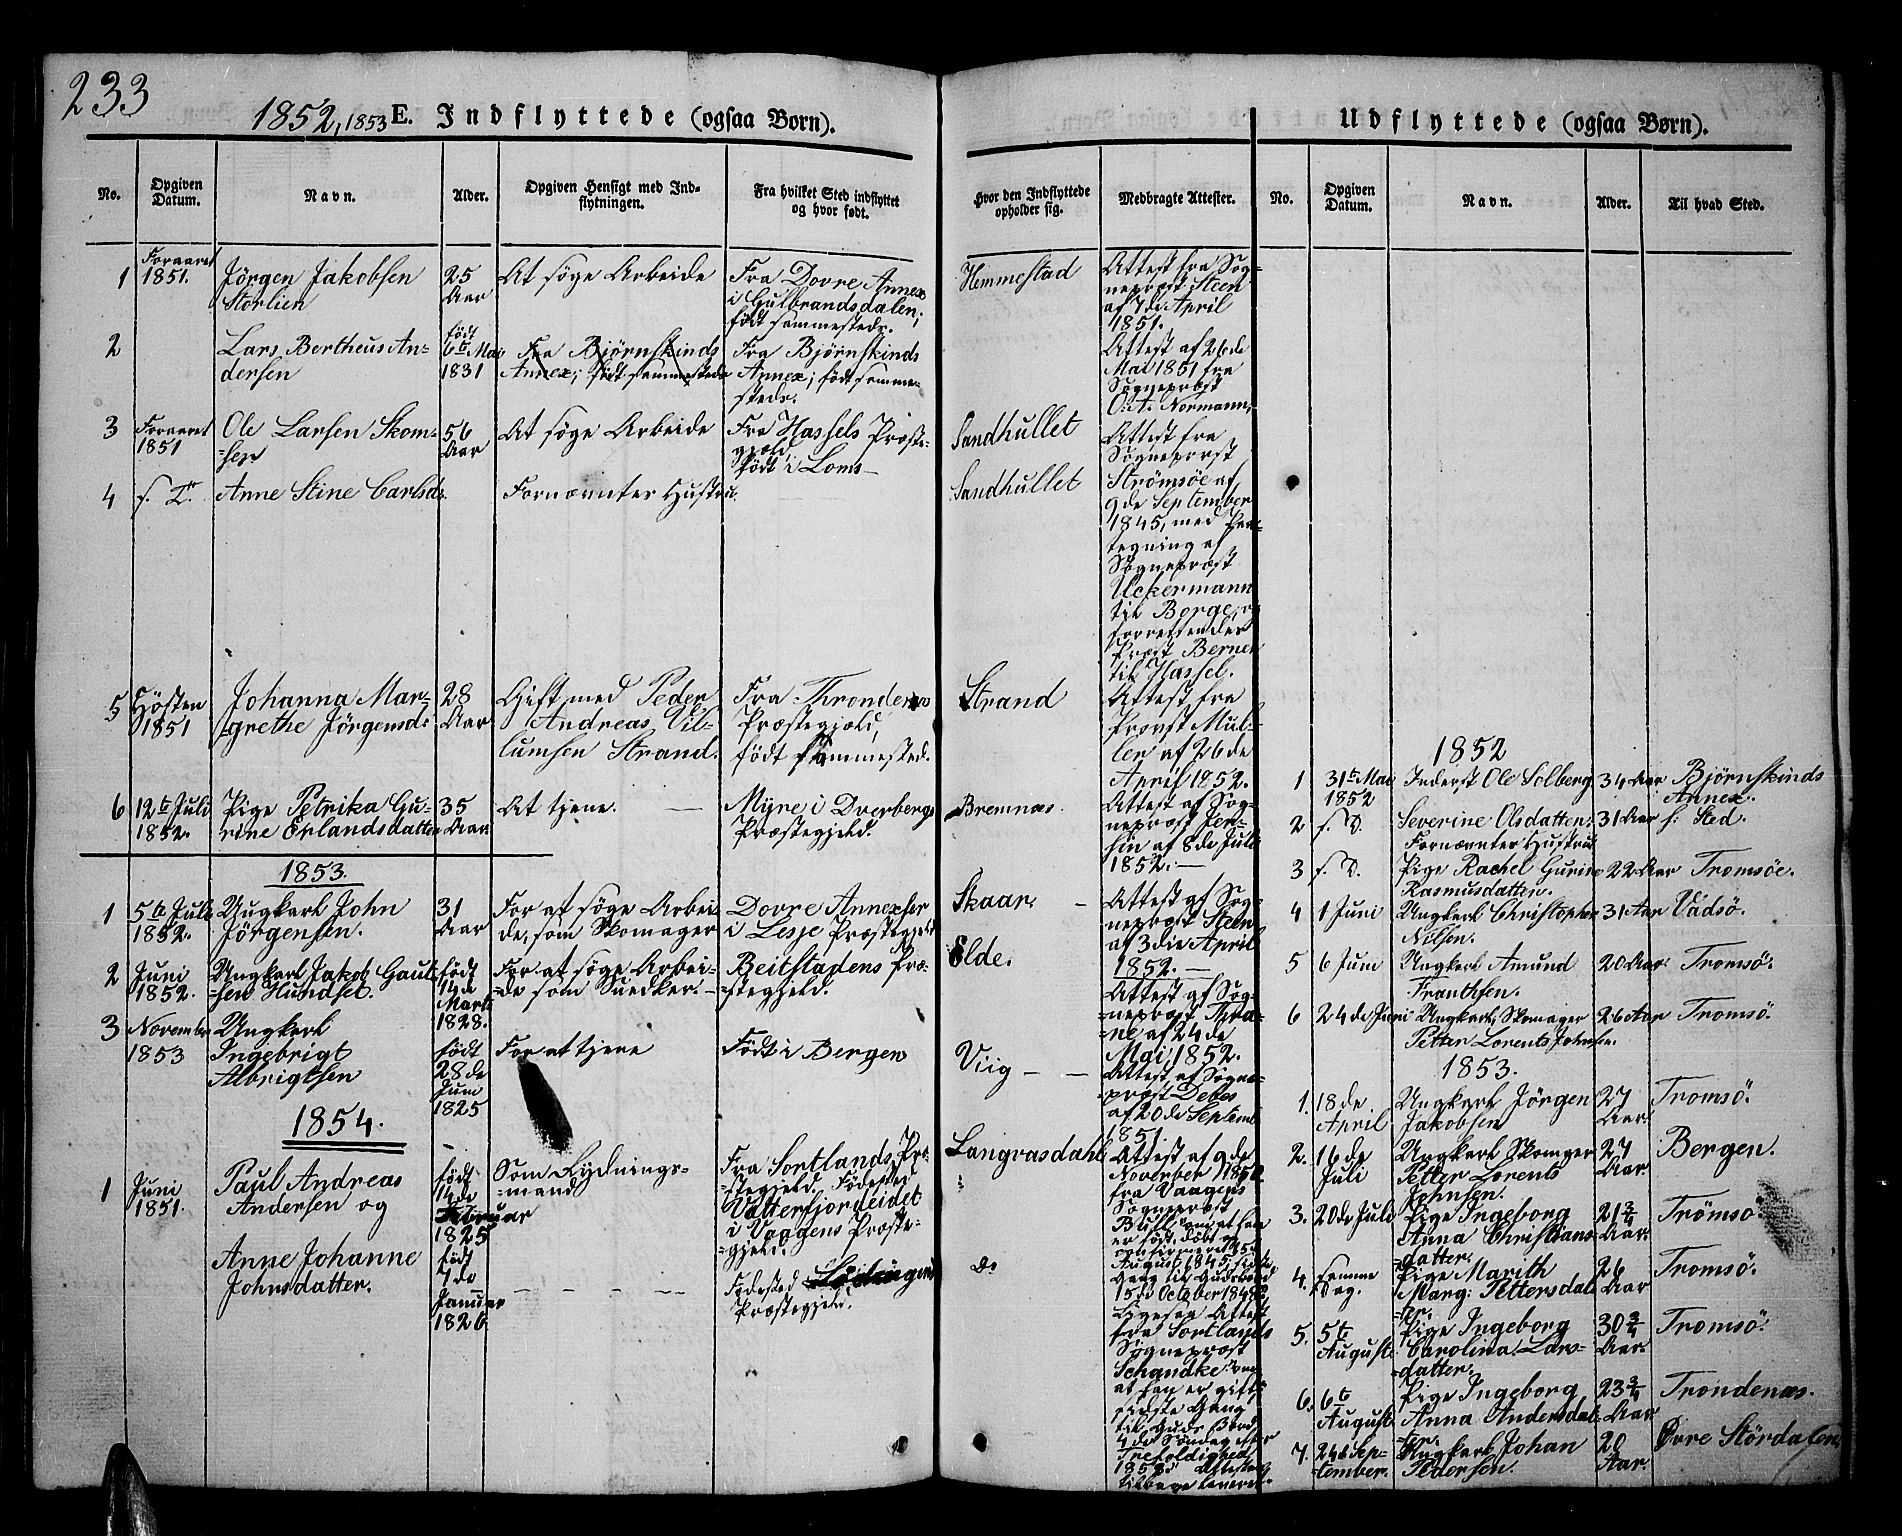 233
1852, 1853 E. Indflyttede (ogsaa Børn).
No.
Opgiven Datum.
Navn.
Alder.
Opgiven Hensigt med Ind-
flytningen.
Fra hvilket Sted indflyttet
og hvor født.
Hvor den Indflyttede
opholder sig.
Medbragte Attester.
1
Foraaret
1851.
Jörgen Jakobsen
Storlien
25
Aar
At söge Arbeide
Fra Dovre Annex
i Gulbrandsdalen;
födt sammesteds.
Hemmestad
Attest fra Sog-
nepræst Steen
af 7de April
1851.
2
Lars Bertheus An-
dersen
födt
6te Mai
1831
Fra Bjørnskinds
Annex; födt sammesteds
Fra Bjørnskinds
Annex; födt samme-
steds.
Attest af 26de
Mai 1851 fra
Sognepræst
O. A. Normann,
3
Foraaret
1851
Ole Larsen Skom-
=sen
56
Aar
At söge Arbeide
Fra Hassels Præste-
gjæld,
födt i Loms
Sandhullet
Attest fra
Sognepræst
4
s. D.
Anne Stine Carlsd.
Fornævntes Hustru.
Sandhullet
Strömsöe af
9de September
1845, med Paa-
tegning af
Sognepræst
Uckermann
til Borge, og
forrettender
Præst Berner
til Hassel.
5
Hösten
1851
Johanna Mar-
grethe Jörgensd.
28
Aar
Gift med Peder
Andreas Vil-
lumsen Strand.
Fra Throndenæs
Præstegjæld,
födt sammested.
Strand
Attest fra
Provst Mül-
ler af 26de
April 1852.
6
12te Juli
1852.
Pige Petrika Gu-
rine Erlandsdatter
35
Aar
At tjene.
Myre i Dverbergs
Præstegjeld.
Bremnæs.
Attest af Sog-
nepræst Jen-
sen af 8de Juli
1852.
1853.
1
5te Juli
1852.
Ungkarl John
Jörgensen.
31
Aar
For at söge Arbei-
de, som Skomager
Dovre Annex
i Lesje Præstegjeld
Skaar,
Attest af Sog-
nepræst Steen
af 3die April
1852.
2
Juni
1852.
Ungkarl Jakob Gaul-
=sen Hundset.
födt
14de
Marts
1828.
For at söge Arbei-
=de som Snedker.
Beitstadens Præ-
=stegjeld.
Elde.
Attest af Sog-
=nepræst
af 24de
Mai 1852.
3
November
1853
Ungkarl
Ingebrigt
Albrigtsen
födt
28de
Juni
1825
For at tjene
Födt i Bergen
Viig
Attest af Sogne-
præst
af 20de Septem
1851.
1854.
1
Juni
1851.
Paul Andreas
Andersen og
födt
14de
Februar
1825
Som Rydnings-
=mand
Fra Sortlands Præ-
=stegjeld. Födested
Vatterfjordeidet
i Vaagens Præste-
=gjeld.
Langvasdahl
Attest af 9de
November 1850
fra Vaagens
Sognepræst
Anne Johanne
Johnsdatter.
födt
7de
Januar
1826
Födested Lödingens
Præstegjeld.
do
August 1845, sidste
Gang til Gudsbord
15de October 1848,
Ligesaa Attest
fra Sortlands
Sognepræst
Schandke om
at han er gift
sidste Gang
til Guds Bord
4de Søndag efter
Trefoldighed
185
tilbage leveret
Udflyttede (ogsaa Børn).
No.
Opgiven Datum.
Navn.
Alder.
Til hvad Sted.
1852
1
31te Mai
1852
Inderst Ole Solberg
34 Aar
Bjørnskinds
Annex.
2
s. D.
Severine Olsdatter,
Fornævntes Hustrue
31 Aar
s. Sted.
3
s. D.
Pige Rachel Gurine
Rasmusdatter.
22 Aar
Tromsöe.
4
1 Juni
Ungkarl Christopher
Nilsen.
31 Aar
Vadsö.
5
6 Juni
Ungkarl Amund
Frantzsen.
20 Aar
Tromsö.
6
24de Juni
Ungkarl, Skomager
Petter Lorents Johnsen.
26 Aar
Tromsö.
1853.
1.
18de
April
Ungkarl Jörgen
Jakobsen
27
Aar
Tromsö.
2.
16de
Juli
Ungkarl Skomager
Petter Lorents
Johnsen.
27
Aar
Bergen.
3.
20de Juli
Pige Ingeborg
Anna Christians-
datter.
21 3/4
Aar
Tromsö
4.
samme
Dag.
Pige Marith
Marg: Pettersdat-
ter.
26
Aar
Tromsö.
5.
5te
August
Pige Ingeborg
Carolina Lars-
=datter.
30 3/4
Aar.
Tromsö.
6.
6te
August
Pige Ingeborg
Anna Andersdat-
ter.
23 3/4
Aar
Trondenæs.
7.
24de Sep-
=tember.
Ungkarl Johan
Pedersen.
20
Aar.
Øvre Stördalen